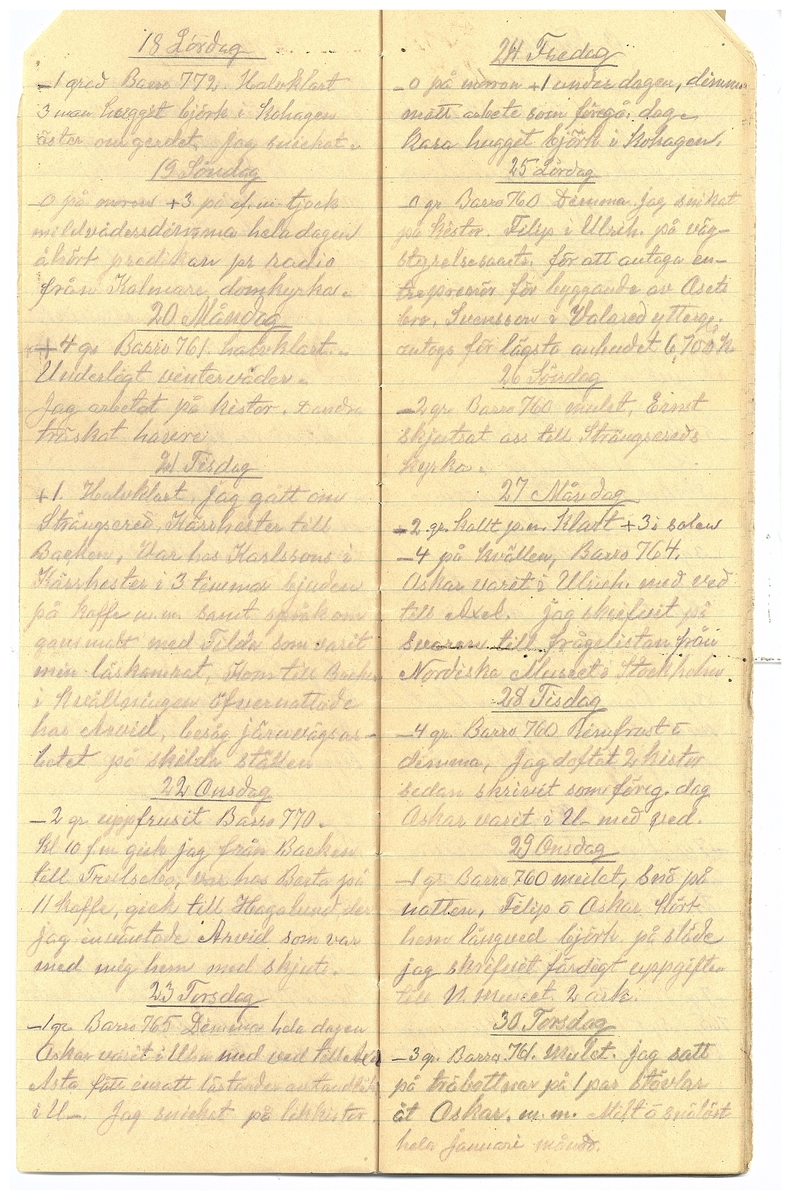 18 Lördag
-1 grad Barro 772. Halvklart
3 man hugget björk i Kohagen
öster om gerdet. Jag snickat.
19 Söndag
-0 på morron +3 på ef.m. tjock
mildvädersdimma hela dagen
åhört predikan pr radio
från Kalmare domkyrka.
20 Måndag
+4 gr Barro 761. halvklart.
Underligt vinterväder.
Jag arbetat på kistor. andra
tröskat havre
21 Tisdag
+1. Halvklart. Jag gått om
Strängsered Kärrhester till
Backen, Var hos Karlssons i
Kärrhester i 3 timmar bjuden
på kaffe m.m. samt språk om
gammalt med Tilda som varit
min läskamrat, Kom till Backen
i kvällningen öfvernattade
hos Arvid, besåg järnvägsar-
betet på skilda ställen
22 Onsdag
-2 gr. uppfrusit Barro 770.
Kl 10 fm gick jag från Backen
till Trulsebo, var hos Berta på
11 kaffe, gick till Hagalund der
jag inväntade Arvid som var
med mig hem med skjuts.
23 Torsdag
-1 gr Barro 765 Dimma hela dagen
Oskar varit i Ulr. med ved till Axel
Asta fått insatt tänder
i U-. Jag snickat på likkistor
24 Fredag
-0 på morron +1 under dagen, dimma
mött arbete som föregå. dag.
Kara hugget björk i Kohagen.
25 Lördag
-1 gr Barro 760 Dimma. Jag snikat
på kistor. Filip i Ulrich. på väg-
styrelsesamt. för att antaga en-
treprenör för byggande av Asets
bro. Svensson i Valared
antogs för lägsta anbudet 6,700 K
26 Söndag
-2 gr. Barro 760 mulet, Ernst
skjutsat oss till Strängsereds
kyrka.
27 Måndag
-2 gr. kallt p.m. Klart +3 i solen
-4 på kvällen, Barro 764.
Oskar varit i Ulrich. med ved
till Axel. Jag skrifvit på
Svaren till frågelistan från
Nordiska Museet i Stockholm
28 Tisdag
-4 gr. Barro 760 Rimfrost o
dimma, Jag doftat 2 kistor
sedan skrivit som föreg. dag
Oskar varit i U. med ved.
29 Onsdag
-1 gr. Barro 760 mulet, Snö på
natten, Filip o Oskar kört
hem långved björk på släde
jag skrifvit färdigt uppgiften
till N. Museet. 2 ark.
30 Torsdag
-3 gr. Barro. 761. Mulet. Jag satt
på träbottnar på 1 par stövlar
åt Oskar. m.m. Milt o snölöst
hela Januari månad.